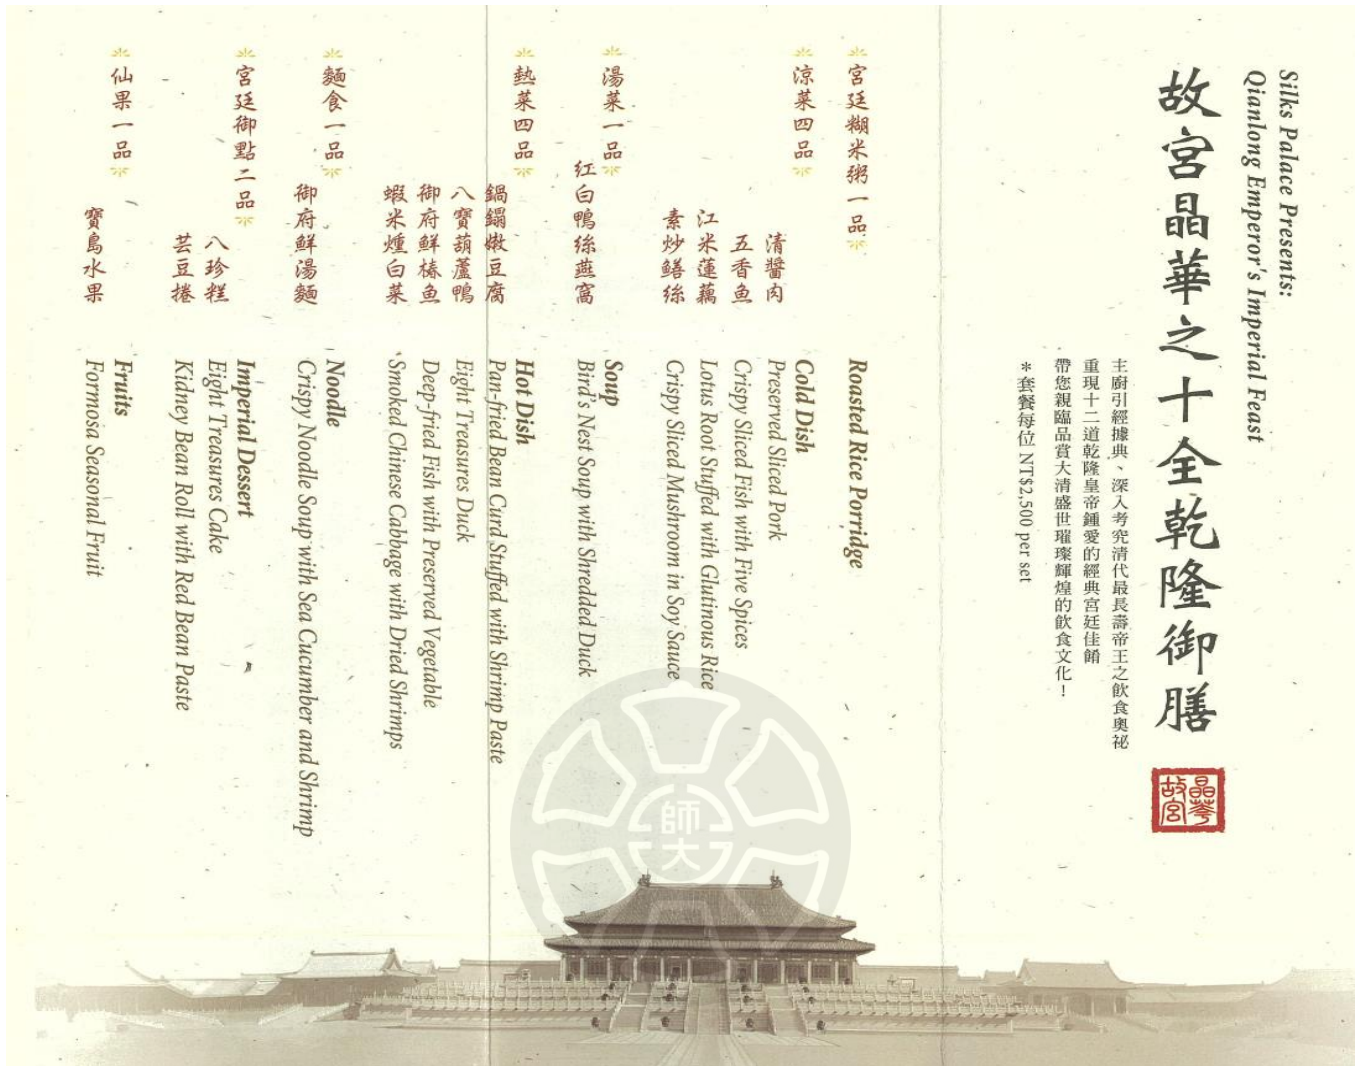 Silks Palace Presents:
Qianlong Emperor's Imperial Feast
故宮晶華之十全乾隆御膳
故宮晶華
主廚引經據典、深入考究清代最長壽帝王之飲食奧祕
重現十二道乾隆皇帝鍾愛的經典宮廷佳餚
帶您親臨品賞大清盛世璀璨輝煌的飲食文化！
*套餐每位 NT$2,500 per set
宮廷糊米粥一品
Roasted Rice Porridge
涼菜四品
Cold Dish
清醬肉
Preserved Sliced Pork
五香魚
Crispy Sliced Fish with Five Spices
江米蓮藕
Lotus Root Stuffed with Glutinous Rice
素炒鱔絲
Crispy Sliced Mushroom in Soy Sauce
湯菜一品
Soup
紅白鴨絲燕窩
Bird's Nest Soup with Shredded Duck
熱菜四品
Hot Dish
鍋鎉嫩豆腐
Pan-fried Bean Curd Stuffed with Shrimp Paste
八寶葫蘆鴨
Eight Treasures Duck
御府鮮椿魚
Deep-fried Fish with Preserved Vegetable
蝦米燻白菜
Smoked Chinese Cabbage with Dried Shrimps
麵食一品
Noodle
御府鮮湯麵
Crispy Noodle Soup with Sea Cucumber and Shrimp
宮廷御點二品
Imperial Dessert
八珍糕
Eight Treasures Cake
芸豆捲
Kidney Bean Roll with Red Bean Paste
仙果一品
Fruits
寶島水果
Formosa Seasonal Fruit
師大